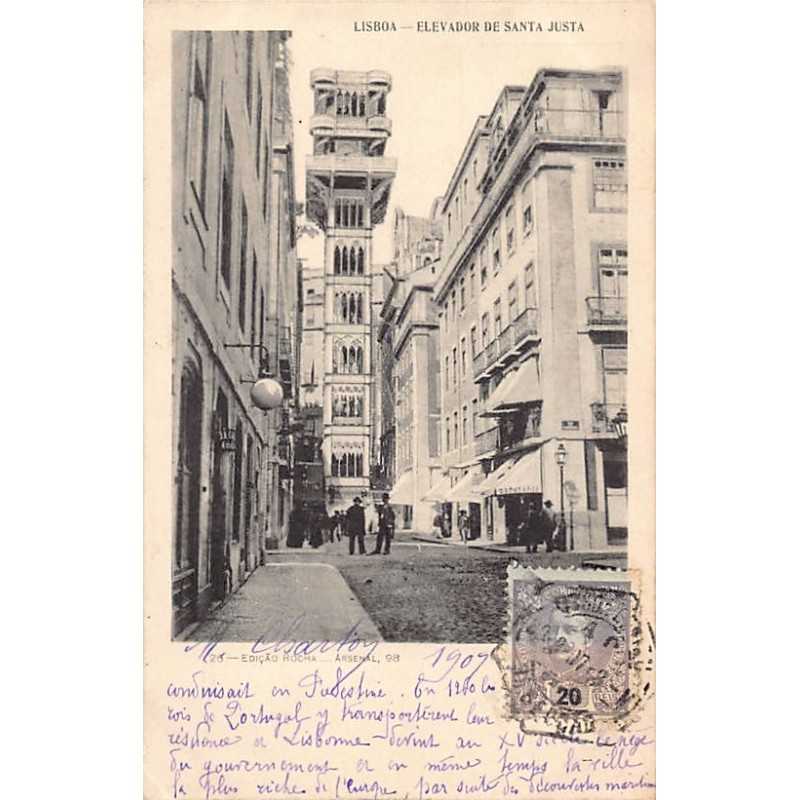 LISBOA — ELEVADOR DE SANTA JUSTA
26 — EDIÇÃO ROCHA — ARSENAL, 98
M. Chartoy 1902
20
REIS
conduisait en Palestine. En 1260 les
rois de Portugal y transportèrent leur
résidence et Lisbonne devint au XV siècle le siège
du gouvernement et en même temps la ville
la plus riche de l'Europe, par suite des découvertes maritim